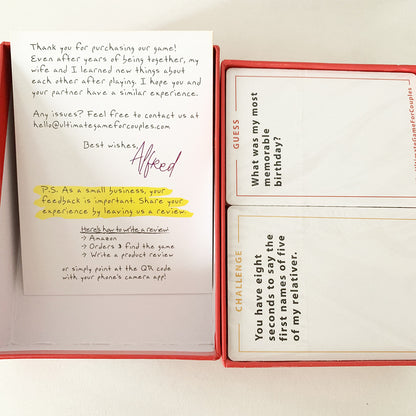 Thank you for purchasing our game!
Even after years of being together, my
wife and I learned new things about
each other after playing. I hope you and
your partner have a similar experience.
Any issues? Feel free to contact us at
hello@ultimategameforcouples.com
Best wishes,
Alfred
P.S. As a small business, your
feedback is important. Share your
experience by leaving us a review.
Here's how to write a review:
→ Amazon
→ Orders & find the game
→ Write a product review
or simply point at the QR code
with your phone's camera app!
GUESS
What was my most
memorable
birthday?
CHALLENGE
You have eight
seconds to say the
first names of five
of my relatives.